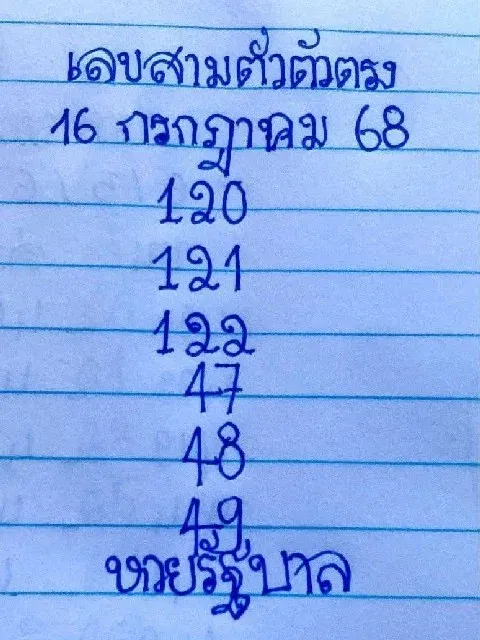 เลขสามตัวตัวตรง
16 กรกฎาคม 68
120
121
122
47
48
49
หวยรัฐบาล